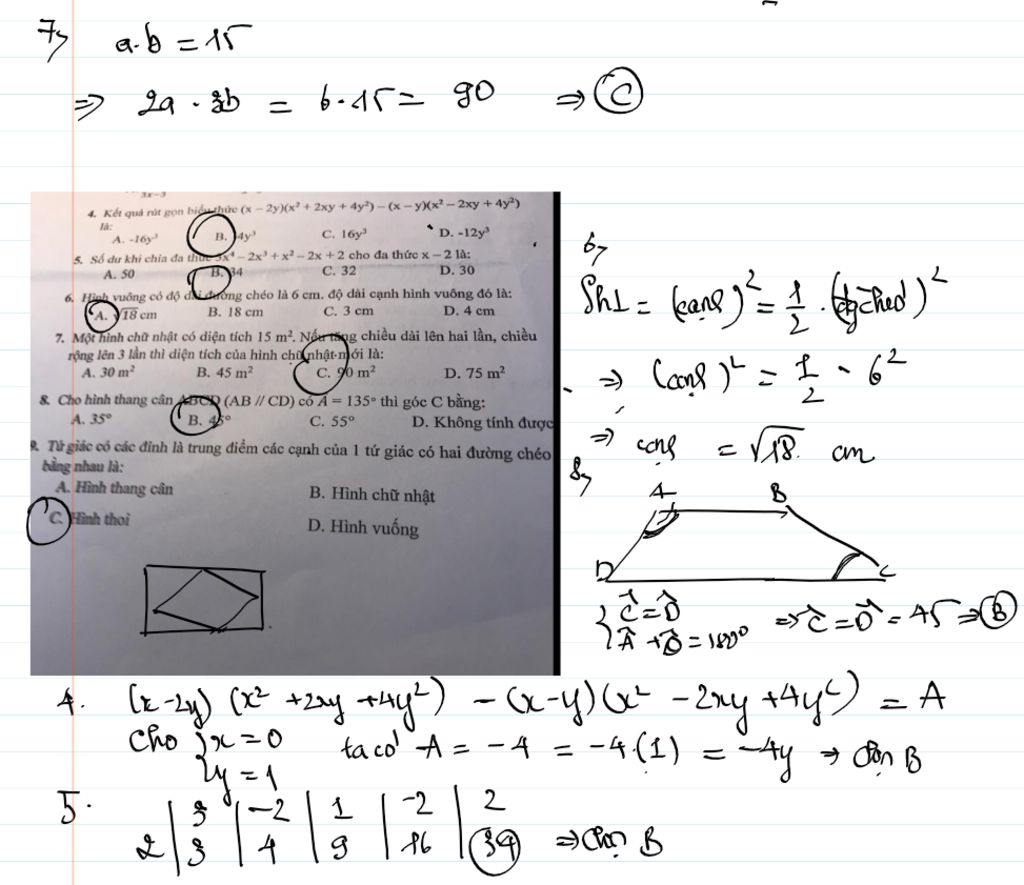 7, a.b = 15
=> 2a . 3b = 6.15 = 90 => C
3x-3
4. Kết quả rút gọn biểu thức (x – 2y)(x² + 2xy + 4y²) – (x – y)(x² – 2xy + 4y²)
là:
A. -16y³ B. -4y³ C. 16y³ D. -12y³
5. Số dư khi chia đa thức 3x⁴ – 2x³ + x² – 2x + 2 cho đa thức x – 2 là:
A. 50 B. 34 C. 32 D. 30
6. Hình vuông có độ dài đường chéo là 6 cm. độ dài cạnh hình vuông đó là:
A. √18 cm B. 18 cm C. 3 cm D. 4 cm
7. Một hình chữ nhật có diện tích 15 m². Nếu tăng chiều dài lên hai lần, chiều
rộng lên 3 lần thì diện tích của hình chữ nhật mới là:
A. 30 m² B. 45 m² C. 90 m² D. 75 m²
8. Cho hình thang cân ABCD (AB // CD) có Â = 135° thì góc C bằng:
A. 35° B. 45° C. 55° D. Không tính được
9. Tứ giác có các đỉnh là trung điểm các cạnh của 1 tứ giác có hai đường chéo
bằng nhau là:
A. Hình thang cân B. Hình chữ nhật
C. Hình thoi D. Hình vuống
6,
= (cạnh)² = 1/2 . (đg chéo)²
=> (cạnh)² = 1/2 . 6²
=> cạnh = √18 cm
8,
A B
D C
{ Ĉ = D̂
Â + D̂ = 180° => Ĉ = D̂ = 45 => B
4. (x-2y) (x² + 2xy + 4y²) - (x-y)(x² - 2xy + 4y²) = A
Cho { x = 0
y = 1 ta có A = -4 = -4.(1) = -4y => chọn B
5. 3 | -2 | 1 | -2 | 2
2 | 3 | 4 | 9 | 16 | 34 => chọn B